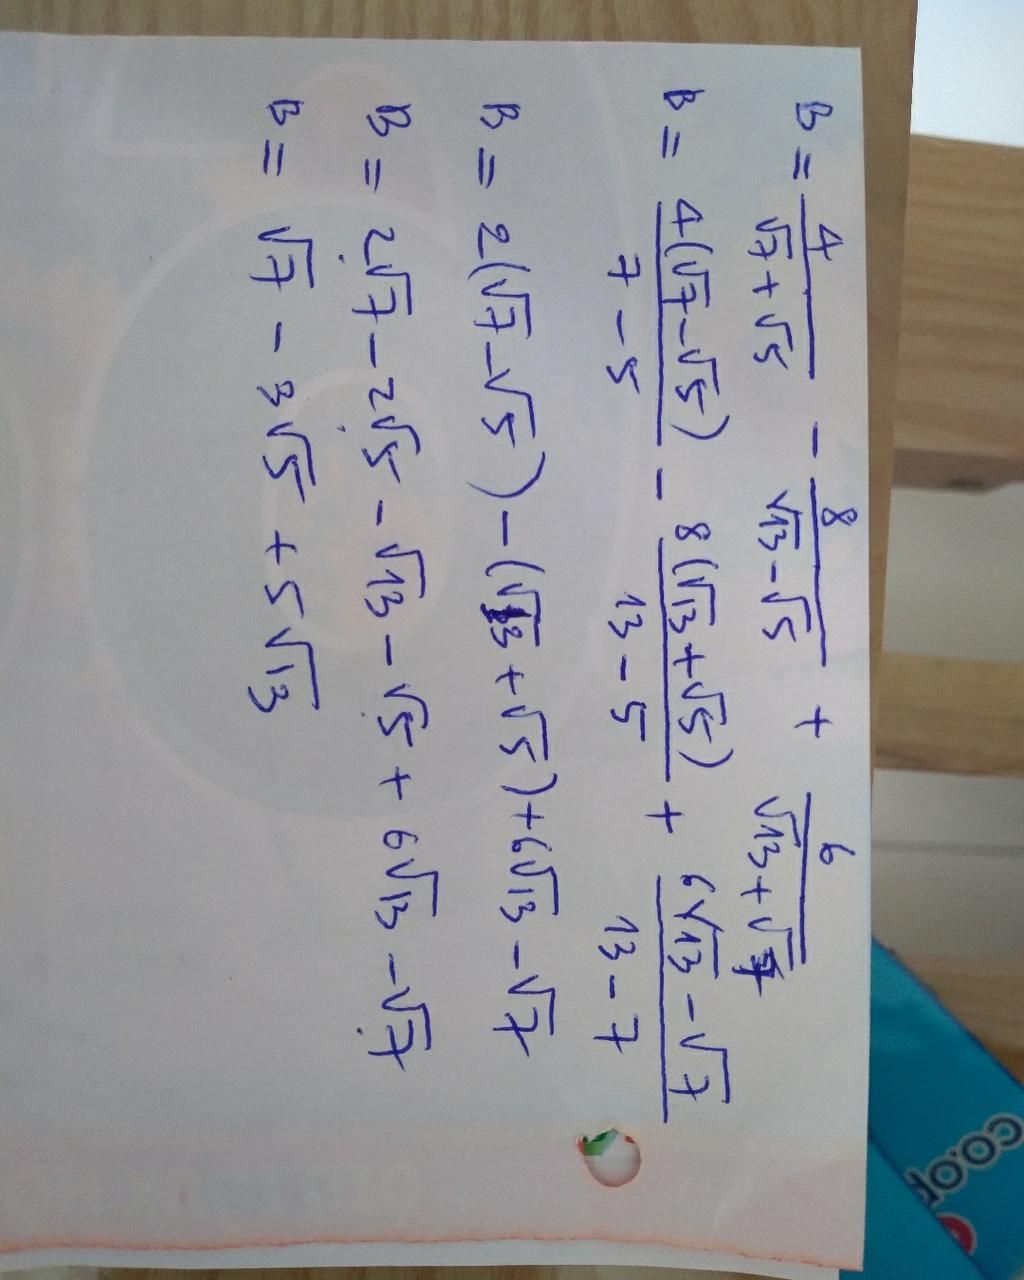 B = 4/(√7 + √5) - 8/(√13 - √5) + 6/(√13 + √7)
B = 4(√7 - √5)/(7 - 5) - 8(√13 + √5)/(13 - 5) + (6√13 - √7)/(13 - 7)
B = 2(√7 - √5) - (√13 + √5) + 6√13 - √7
B = 2√7 - 2√5 - √13 - √5 + 6√13 - √7
B = √7 - 3√5 + 5√13
co.op